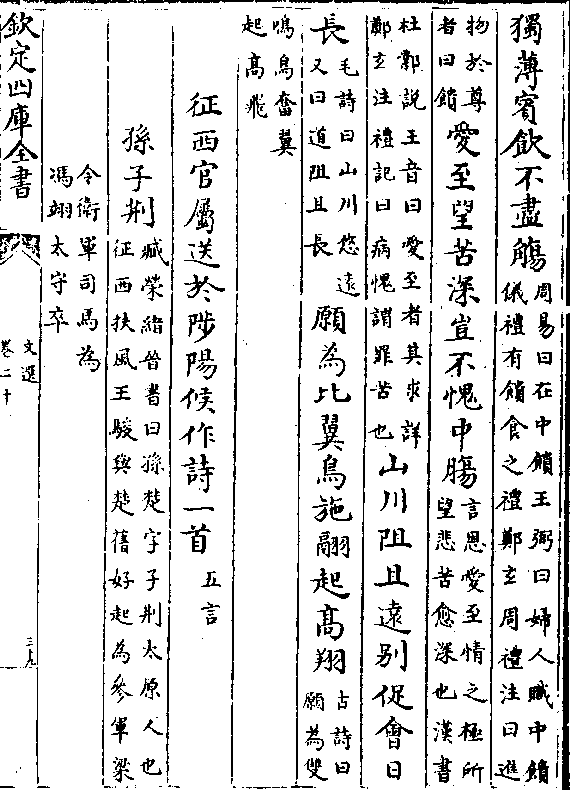 獨薄賔飲不盡觴周易曰在中饋王弼曰婦人職中饋儀禮有饋食之禮鄭玄周禮注曰進
物於尊者曰饋愛至望苦深豈不愧中膓言恩愛至情之極所望悲苦愈深也漢書
杜鄴說王音曰愛至者其求詳鄭玄注禮記曰病愧謂罪苦也山川阻且遠别促會日
長毛詩曰山川悠遠又曰道阻且長願為比翼鳥施翮起髙翔古詩曰願為雙
鳴鳥奮翼起髙飛
征西官屬送於陟陽候作詩一首五言
孫子荆臧榮緒晉書曰孫楚字子荆太原人也征西扶風王駿與楚舊好起為參軍梁
令衛軍司馬為馮翊太守卒
欽定四庫全書
文選
卷二十